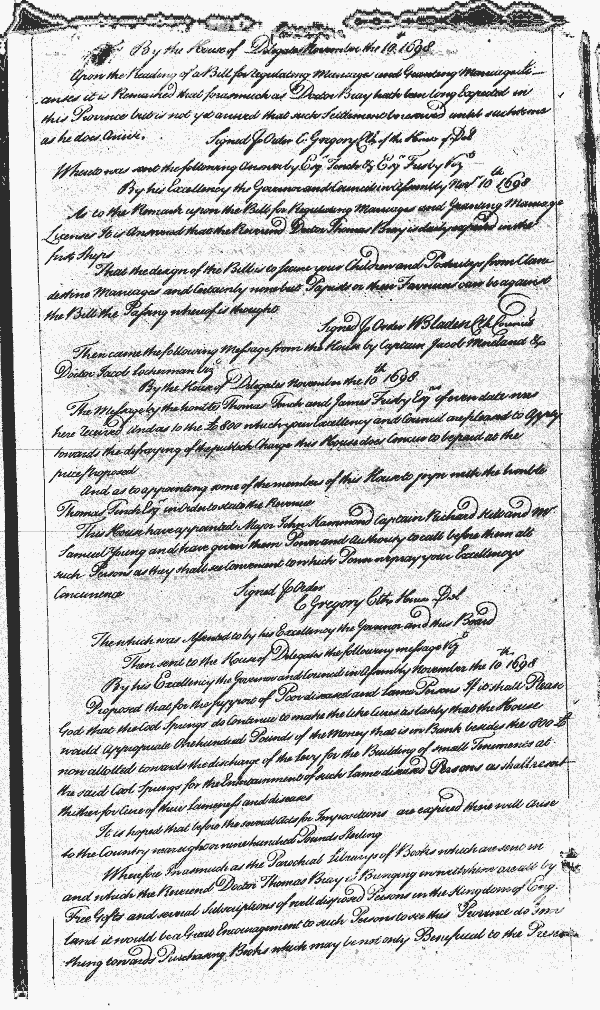 By the House of Delegates November the 10th 1698
Upon the Reading of a Bill for regulating Mariages and Granting Mariage Li=
censes it is Remarked that forasmuch as Doctor Bray hath been long Expected in
this Province but is not yet arrived that such Settlement be waved until such time
as he does Arrive. Signed p Order C. Gregory Clk of the House of Del
Whereto was sent the following Answer by Esqr Tench & Esqr Frisby Vizt
By his Excellency the Governor and Councill in Assembly Novr 10th 1698
As to the Remark upon the Bill for Regulating Mariages and Granting Mariage
Licenses It is Answered that the Reverend Doctor Thomas Bray is daily expected in the
first Ships
That the design of the Bill is to secure your Children and Posteritys from Clan=
destine Mariages and Certainly none but Papists or their Favourers can be against
the Bill the Passing whereof is thought
Signed p Order W Bladen Clk Council
Then came the following Message from the House by Captain Jacob Moreland &
Doctor Jacob Lockerman Vizt
By the House of Delegates November the 10th 1698
The Message by the honble Thomas Tench and James Frisby Esqrs of even date was
here received And as to the £800 which your Excellency and Council are pleased to Apply
towards the defraying of the publick Charge this House does Concur to be paid at the
price proposed
And as to appointing some of the members of this House to joyn with the honble
Thomas Tench Esqr in Order to state the Revenue
This House have appointed Major John Hammond Captain Richard Hill and Mr
Samuel Young and have given them Power and Authority to call before them all
such Persons as they shall see Convenient to which Power we pray your Excellencys
Concurrence Signed p Order
C Gregory Clk House Del
Then which was Assented to by his Excellency the Governor and this Board
Then sent to the House of Delegates the following message Vizt
By his Excellency the Governor and Council in Assembly November the 10th 1698
Proposed that for the support of Poor diseased and Lame Persons If it shall Please
God that the Cool Springs do Continue to make the like Cures as lately that the House
would Appropriate One hundred Pounds of the Money that is in Bank besides the 800 £
now allotted towards the discharge of the Levy for the Building of small Tenements at
the said Cool Springs for the Entertainment of such Lame diseased Persons as shall resort
thither for Cure of their Lameness and diseases
It is hoped that before the several Acts for Impositions are expired there will arise
to the Country near upon nine hundred Pounds Sterling
Wherefore Inasmuch as the Parochial Librarys of Books which are sent in
and which the Reverend Doctor Thomas Bray is Bringing in with him are all by
Free Gifts and several Subscriptions of well disposed Persons in the Kingdom of Eng-
land it would be a Great Encouragement to such Persons to see this Province do some
thing towards Purchasing Books which may be not only Beneficial to the Present